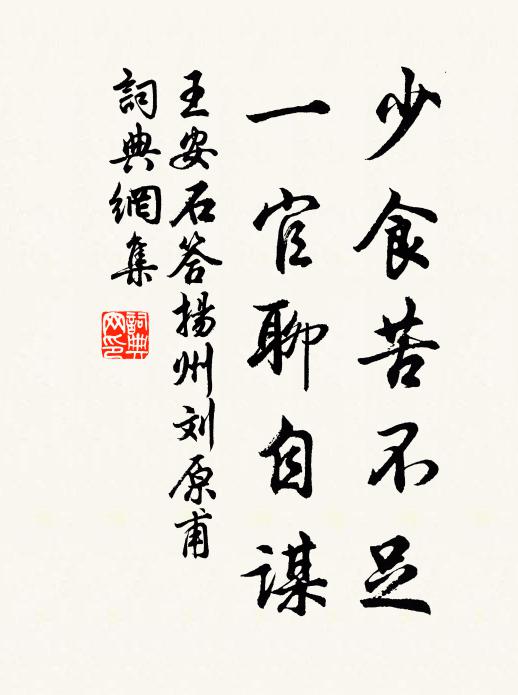 少食苦不足
一官聊自謀
王安石答揚州刘原甫
詞典網集
詞典
网印